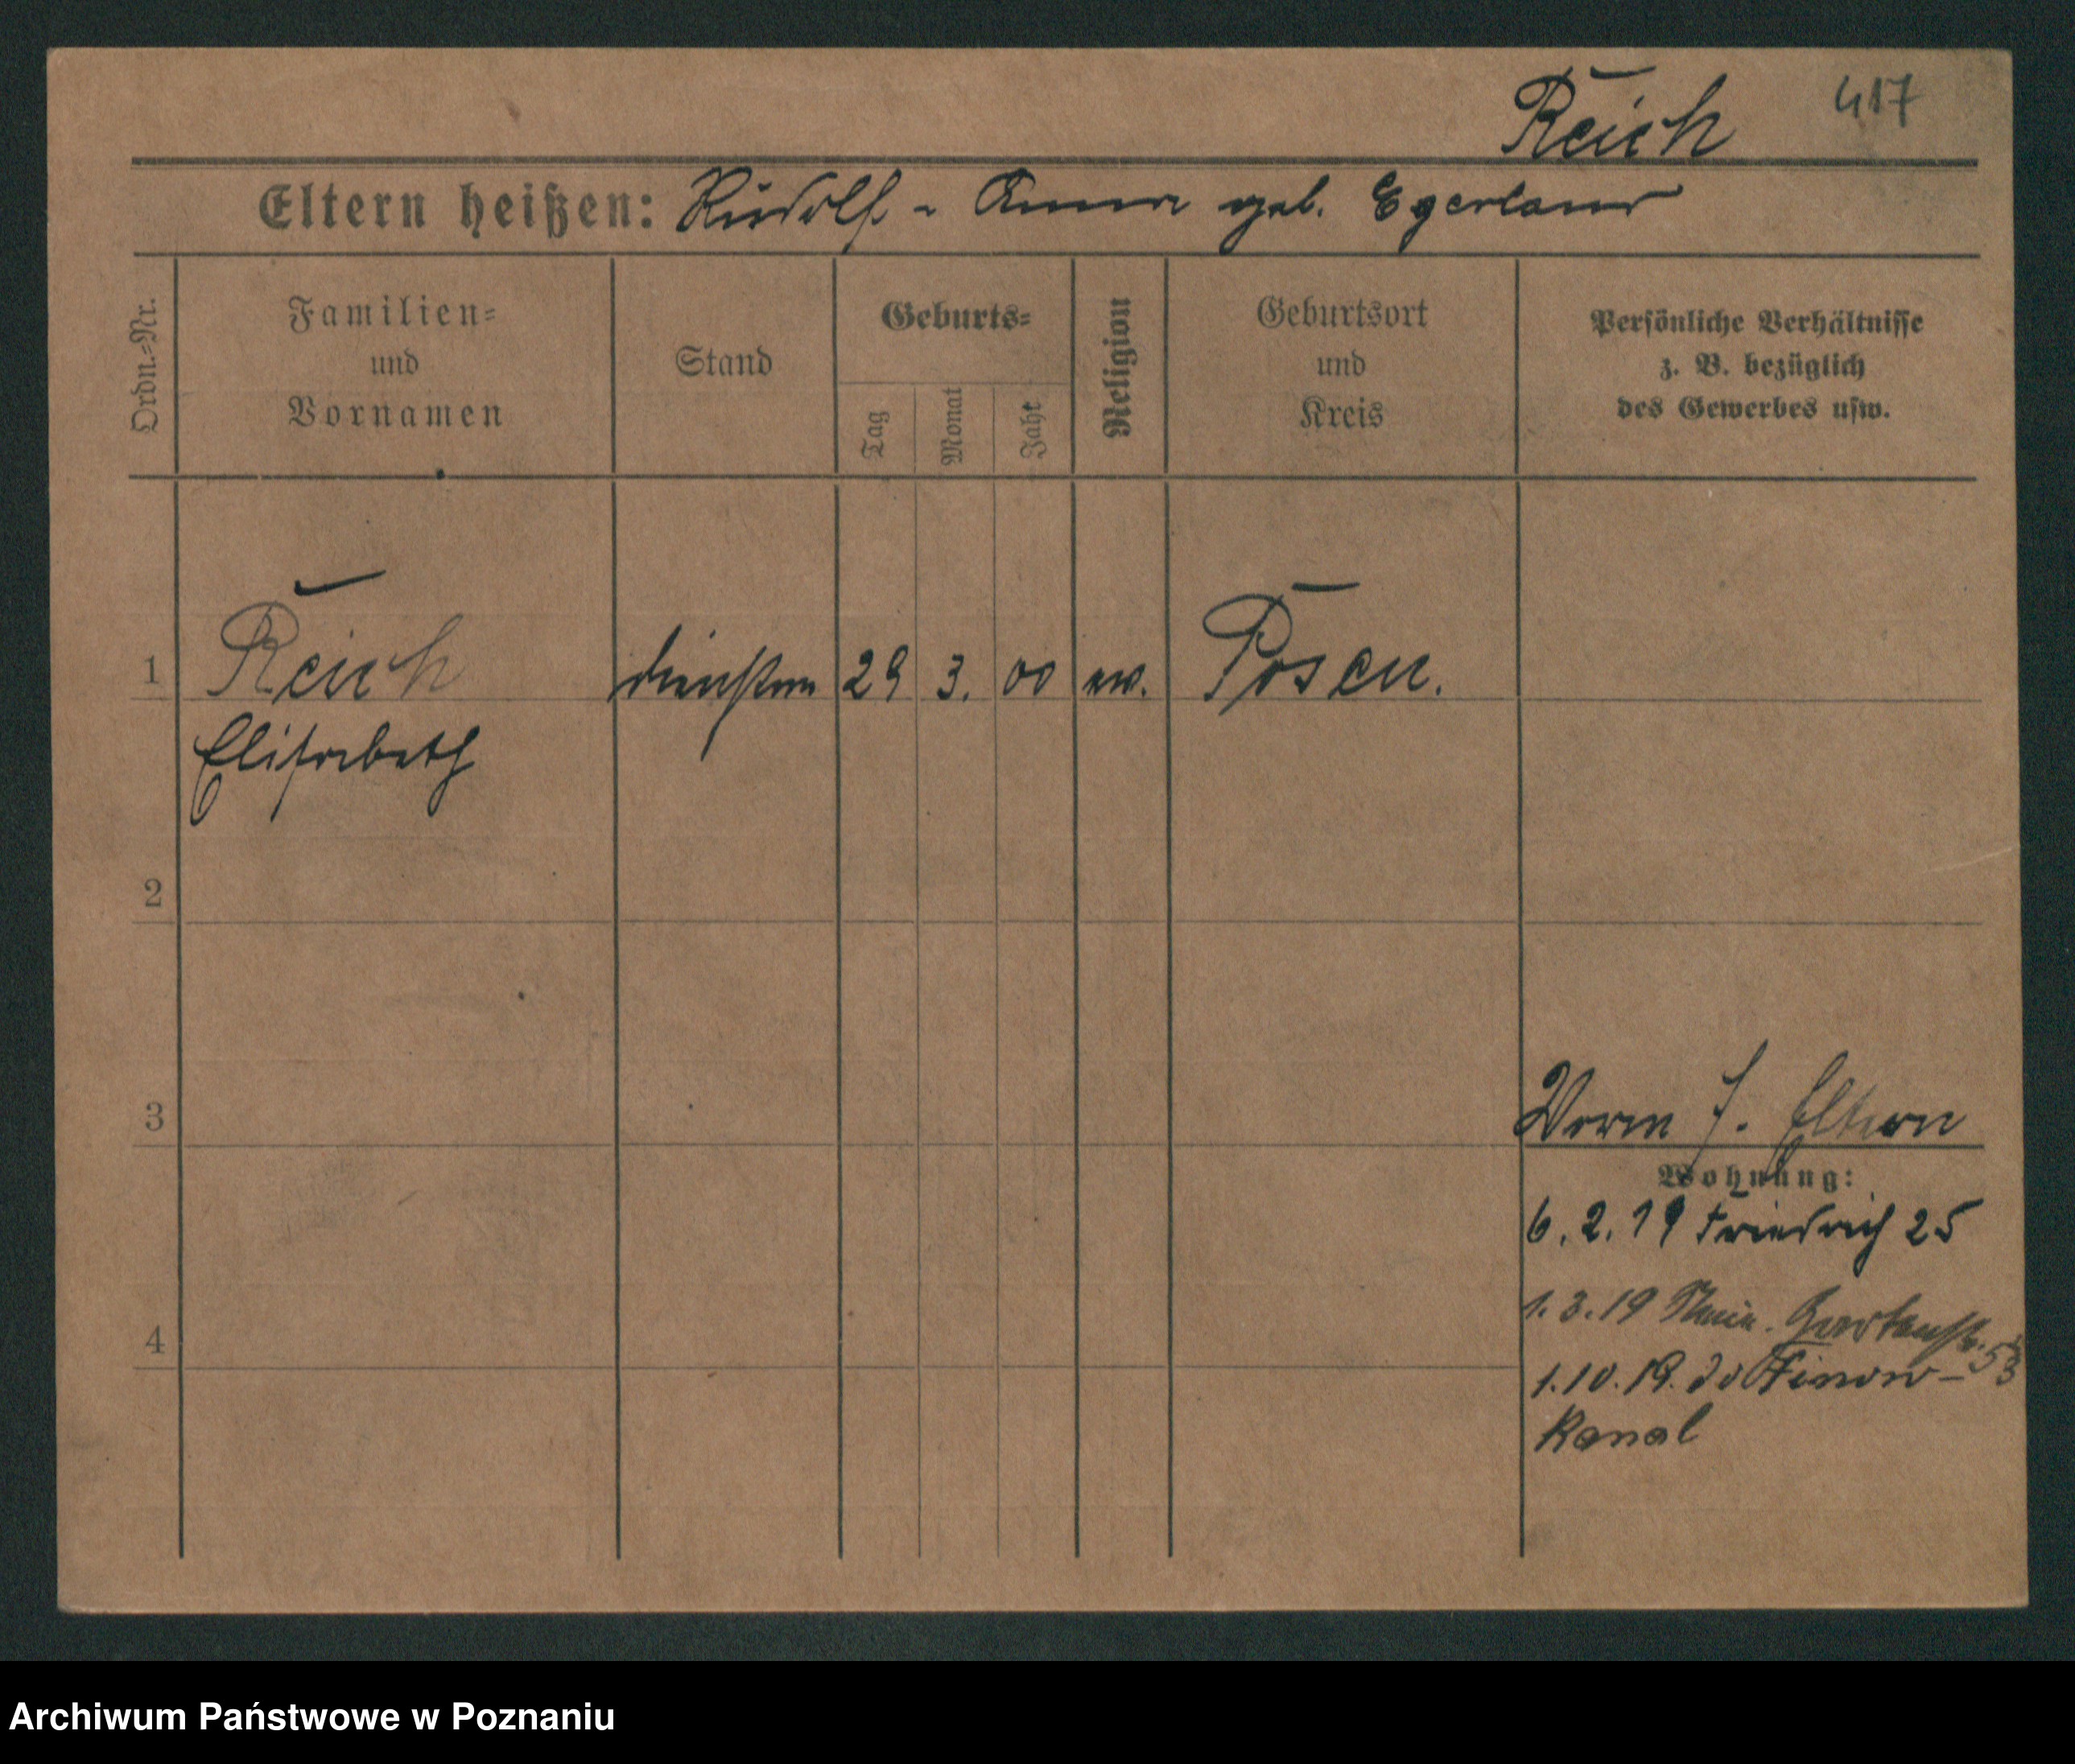 Reich 417
Eltern heißen: Rudolf - Anna geb. Egerland
Ordn.-Nr.
Familien-
und
Vornamen
Stand
Geburts-
Tag
Monat
Jahr
Religion
Geburtsort
und
Kreis
Persönliche Verhältnisse
z. B. bezüglich
des Gewerbes usw.
1 Reich 29 3. 00 ev. Posen.
Elisabeth
2
3
Vorm f. Eltern
Wohnung:
6.2.19 Friedrich 25
1.3.19
4
1.10.19. do Finow-
Kanal
Archiwum Państwowe w Poznaniu